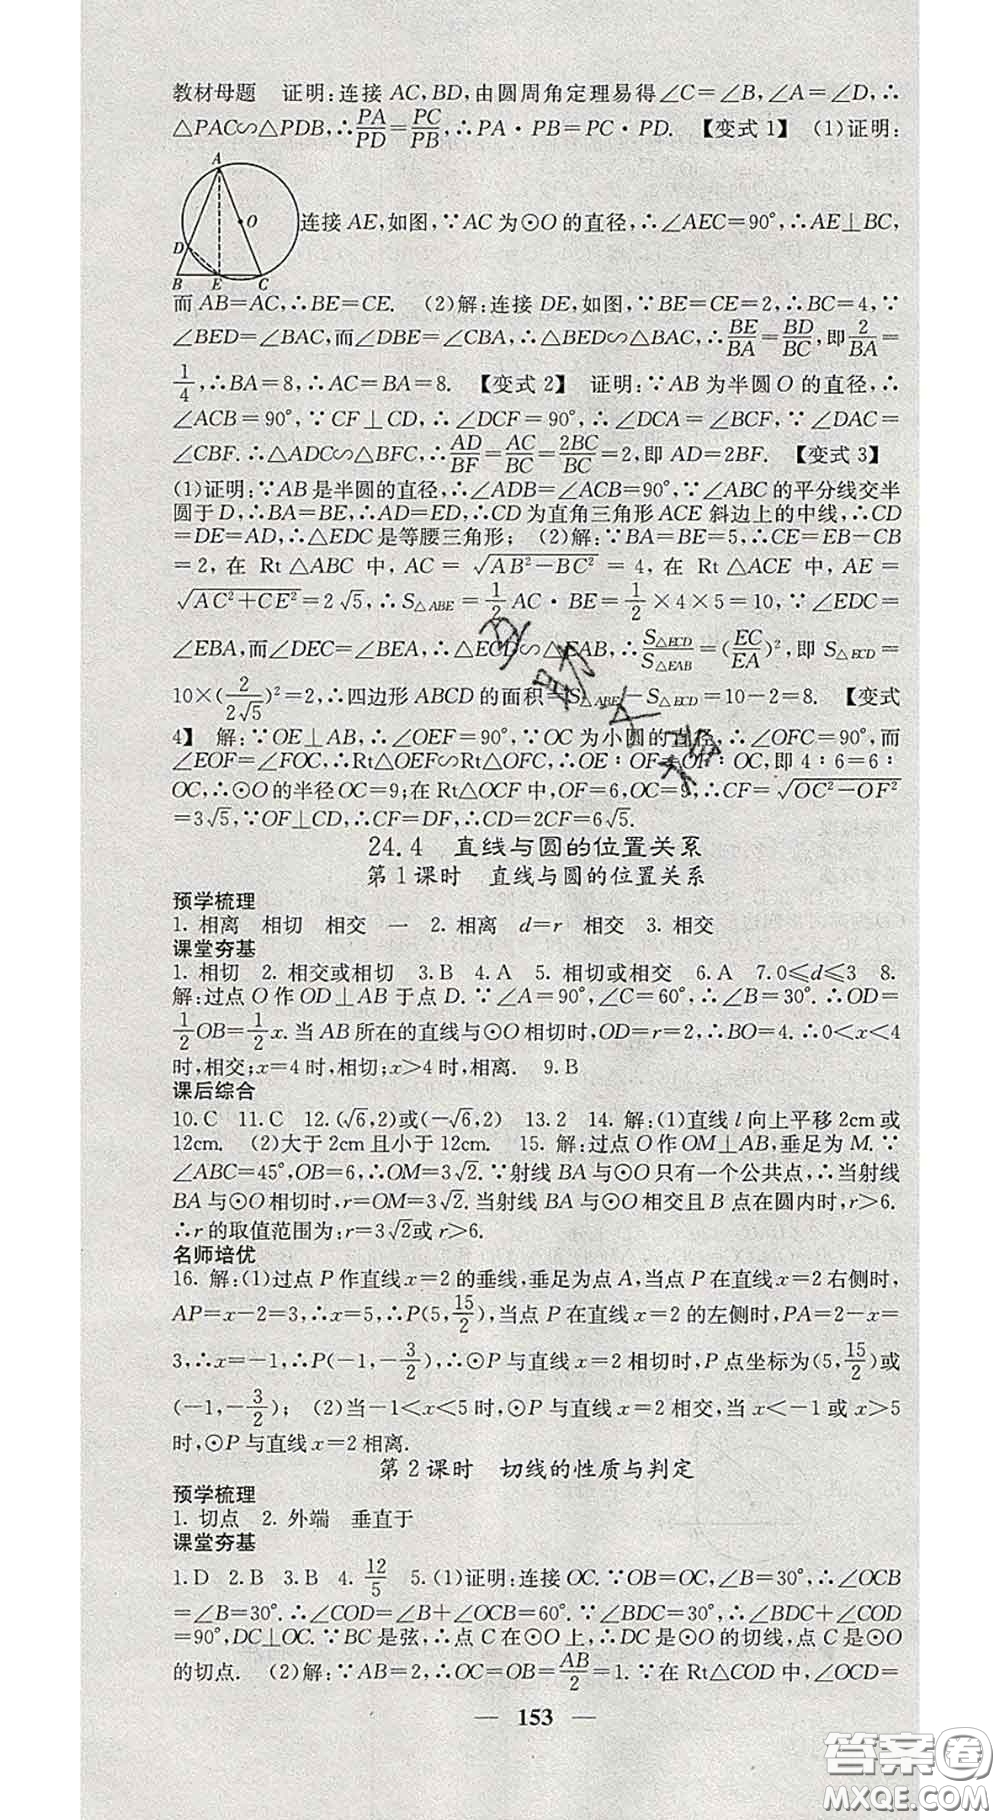 教材母题　证明:连接 AC,BD,由圆周角定理易得∠C=∠B,∠A=∠D,∴
△PAC∽△PDB,∴PA/PD=PC/PB,∴PA·PB=PC·PD.　【变式1】　(1)证明:
A
O
D
B E C
连接 AE,如图,∵AC 为⊙O 的直径,∴∠AEC=90°,∴AE⊥BC,
而 AB=AC,∴BE=CE.　(2)解:连接 DE,如图,∵BE=CE=2,∴BC=4,∵
∠BED=∠BAC,而∠DBE=∠CBA,∴△BED∽△BAC,∴BE/BA=BD/BC,即2/BA=
1/4,∴BA=8,∴AC=BA=8.　【变式2】　证明:∵AB 为半圆 O 的直径,∴
∠ACB=90°,∵CF⊥CD,∴∠DCF=90°,∴∠DCA=∠BCF,∵∠DAC=
∠CBF.∴△ADC∽△BFC,∴AD/BF=AC/BC=2BC/BC=2,即 AD=2BF.　【变式3】
(1)证明:∵AB是半圆的直径,∴∠ADB=∠ACB=90°,∵∠ABC的平分线交半
圆于 D,∴BA=BE,∴AD=ED,∴CD 为直角三角形 ACE 斜边上的中线,∴CD
=DE=AD,∴△EDC 是等腰三角形；(2)解:∵BA=BE=5,∴CE=EB−CB
=2,在 Rt△ABC 中,AC=√(AB²−BC²)=4,在 Rt△ACE 中,AE=
√(AC²+CE²)=2√5,∴S△ABE=1/2AC·BE=1/2×4×5=10,∵∠EDC=
∠EBA,而∠DEC=∠BEA,∴△ECD∽△EAB,∴S△ECD/S△EAB=(EC/EA)²,即 S△ECD=
10×(2/2√5)²=2,∴四边形 ABCD 的面积=S△ABE−S△ECD=10−2=8.　【变式
4】　解:∵OE⊥AB,∴∠OEF=90°,∵OC 为小圆的直径,∴∠OFC=90°,而
∠EOF=∠FOC,∴Rt△OEF∽Rt△OFC,∴OE∶OF=OF∶OC,即 4∶6=6∶
OC,∴⊙O 的半径 OC=9;在 Rt△OCF 中,OF=6,OC=9,∴CF=√(OC²−OF²)
=3√5,∵OF⊥CD,∴CF=DF,∴CD=2CF=6√5.
24.4　直线与圆的位置关系
第1课时　直线与圆的位置关系
预学梳理
1. 相离　相切　相交　一　2. 相离　d=r　相交　3. 相交
课堂夯基
1. 相切　2. 相交或相切　3.B　4.A　5. 相切或相交　6.A　7.0⩽d⩽3　8.
解:过点 O 作 OD⊥AB 于点 D.∵∠A=90°,∠C=60°,∴∠B=30°.∴OD=
1/2OB=1/2x.当 AB 所在的直线与⊙O 相切时,OD=r=2,∴BO=4.∴0<x<4
时,相交;x=4 时,相切;x>4 时,相离.　9.B
课后综合
10.C　11.C　12.(√6,2)或(−√6,2)　13.2　14. 解:(1)直线 l 向上平移 2cm 或
12cm.　(2)大于 2cm 且小于 12cm.　15. 解:过点 O 作 OM⊥AB,垂足为 M.∵
∠ABC=45°,OB=6,∴OM=3√2.∵射线 BA 与⊙O 只有一个公共点,∴当射线
BA 与⊙O 相切时,r=OM=3√2.当射线 BA 与⊙O 相交且 B 点在圆内时,r>6.
∴r 的取值范围为:r=3√2或 r>6.
名师培优
16. 解:(1)过点 P 作直线 x=2 的垂线,垂足为点 A,当点 P 在直线 x=2 右侧时,
AP=x−2=3,∴x=5,∴P(5,15/2),当点 P 在直线 x=2 的左侧时,PA=2−x=
3,∴x=−1,∴P(−1,−3/2),∴⊙P 与直线 x=2 相切时,P 点坐标为(5,15/2)或
(−1,−3/2)；(2)当−1<x<5 时,⊙P 与直线 x=2 相交,当 x<−1 或 x>5
时,⊙P 与直线 x=2 相离.
第2课时　切线的性质与判定
预学梳理
1. 切点　2. 外端　垂直于
课堂夯基
1.D　2.B　3.B　4.12/5　5.(1)证明:连接 OC.∵OB=OC,∠B=30°,∴∠OCB
=∠B=30°.∴∠COD=∠B+∠OCB=60°.∵∠BDC=30°,∴∠BDC+∠COD
=90°,DC⊥OC.∵BC 是弦,∴点 C 在⊙O 上,∴DC 是⊙O 的切线,点 C 是⊙O
的切点.　(2)解:∵AB=2,∴OC=OB=AB/2=1.∵在 Rt△COD 中,∠OCD=
— 153 —
答案圈
MXQE.COM